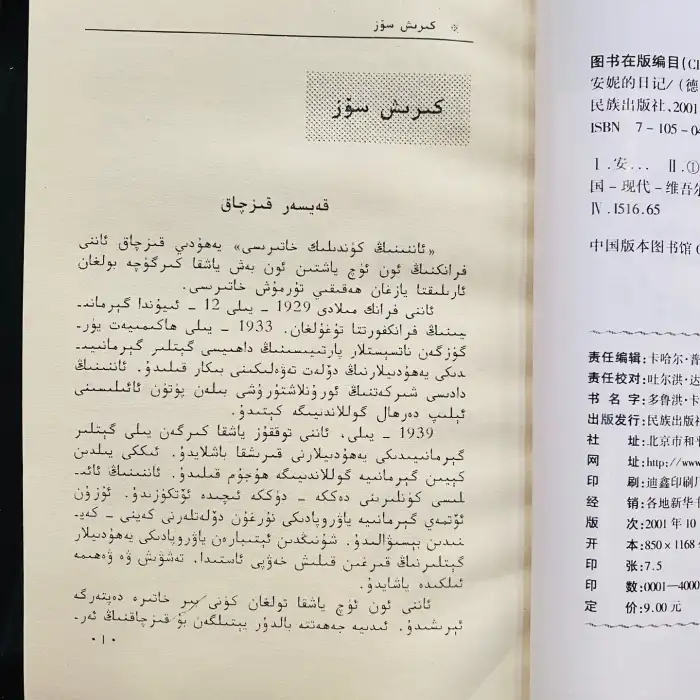 كىرىش سۆز
كىرىش سۆز
قەيسەر قىزچاق
«ئاننىنىڭ كۈندىلىك خاتىرىسى» يەھۇدىي قىزچاق ئاننى
فرانكنىڭ ئون ئۈچ ياشتىن ئون بەش ياشقا كىرگۈچە بولغان
ئارىلىقتا يازغان ھەقىقىي تۇرمۇش خاتىرىسى.
ئاننى فرانك مىلادى 1929 - يىلى 12 - ئىيۇندا گېرمانىـ
يىنىڭ فرانكفورتتا تۇغۇلغان. 1933 - يىلى ھاكىمىيەت يۈرـ
گۈزگەن ناتسېستلار پارتىيىسىنىڭ داھىيسى گىتلېر گېرمانىيىـ
دىكى يەھۇدىيلارنىڭ دۆلەت تەۋەلىكىنى بىكار قىلىدۇ. ئاننىنىڭ
دادىسى شىركەتنىڭ ئورۇنلاشتۇرۇشى بىلەن پۈتۈن ئائىلىسىنى
ئېلىپ دەرھال گوللاندىيىگە كېتىدۇ.
1939 - يىلى، ئاننى توققۇز ياشقا كىرگەن يىلى گىتلېر
گېرمانىيىدىكى يەھۇدىيلارنى قىرىشقا باشلايدۇ. ئىككى يىلدىن
كېيىن گېرمانىيە گوللاندىيىگە ھۇجۇم قىلىدۇ. ئاننىنىڭ ئائىـ
لىسى كۈنلىرىنى دەككە - دۈككە ئىچىدە ئۆتكۈزىدۇ. ئۇزۇن
ئۆتمەي گېرمانىيە ياۋروپادىكى نۇرغۇن دۆلەتلەرنى كەينى - كەيـ
نىدىن بېسىۋالىدۇ. شۇنىڭدىن ئېتىبارەن ياۋروپادىكى يەھۇدىيلار
گىتلېرنىڭ قىرغىن قىلىش خەۋپى ئاستىدا، تەشۋىش ۋە ۋەھىمە
ئىلكىدە ياشايدۇ.
ئاننى ئون ئۈچ ياشقا تولغان كۈنى بىر خاتىرە دەپتەرگە
ئېرىشىدۇ. ئىدىيە جەھەتتە بالدۇر يېتىلگەن بۇ قىزچاقنىڭ ئەرـ
٠١٠
图书在版编目(CI
安妮的日记/(德
民族出版社,2001
ISBN 7-105-04
Ⅰ.安… Ⅱ.①
国-现代-维吾尔
Ⅳ.I516.65
中国版本图书馆C
责任编辑:卡哈尔·普
责任校对:吐尔洪·达
书名字:多鲁洪·卡
出版发行:民族出版社
社址:北京市和平
网址:http://www
印刷:迪鑫印刷厂
经销:各地新华书
版次:2001年10
开本:850×1168
印张:7.5
印数:0001—4000
定价:9.00元